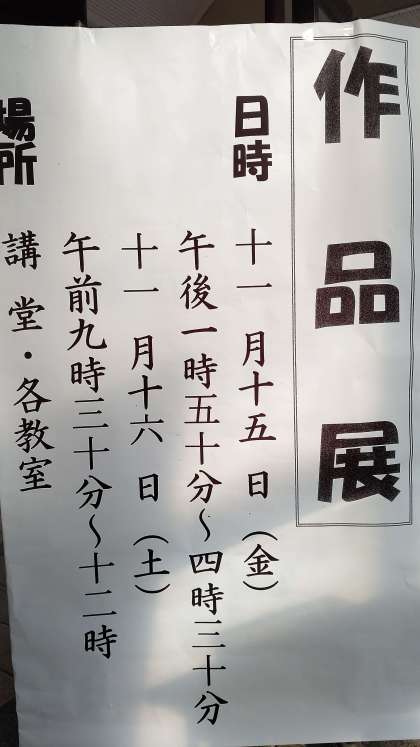 作品展
日時 十一月十五日(金)
午後一時五十分〜四時三十分
十一月十六日(土)
午前九時三十分〜十二時
場所 講堂・各教室